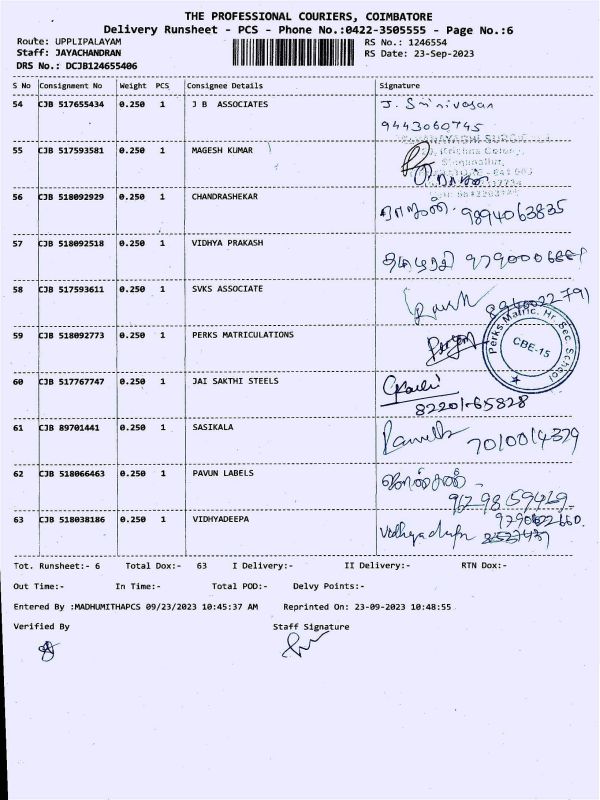 THE PROFESSIONAL COURIERS, COIMBATORE
Delivery Runsheet - PCS - Phone No.:0422-3505555 - Page No.:6
Route: UPPLIPALAYAM RS No.: 1246554
Staff: JAYACHANDRAN RS Date: 23-Sep-2023
DRS No.: DCJB124655406
S No Consignment No Weight PCS Consignee Details Signature
54 CJB 517655434 0.250 1 J B ASSOCIATES J. Srinivasan
9443060745
55 CJB 517593581 0.250 1 MAGESH KUMAR
56 CJB 518092929 0.250 1 CHANDRASHEKAR 9894063835
57 CJB 518092518 0.250 1 VIDHYA PRAKASH
58 CJB 517593611 0.250 1 SVKS ASSOCIATE
59 CJB 518092773 0.250 1 PERKS MATRICULATIONS
Perks Matric. Hr. Sec. School
CBE-15
60 CJB 517767747 0.250 1 JAI SAKTHI STEELS
82201-65828
61 CJB 89701441 0.250 1 SASIKALA 7010014379
62 CJB 518066463 0.250 1 PAVUN LABELS
63 CJB 518038186 0.250 1 VIDHYADEEPA
Tot. Runsheet:- 6 Total Dox:- 63 I Delivery:- II Delivery:- RTN Dox:-
Out Time:- In Time:- Total POD:- Delvy Points:-
Entered By :MADHUMITHAPCS 09/23/2023 10:45:37 AM Reprinted On: 23-09-2023 10:48:55
Verified By Staff Signature